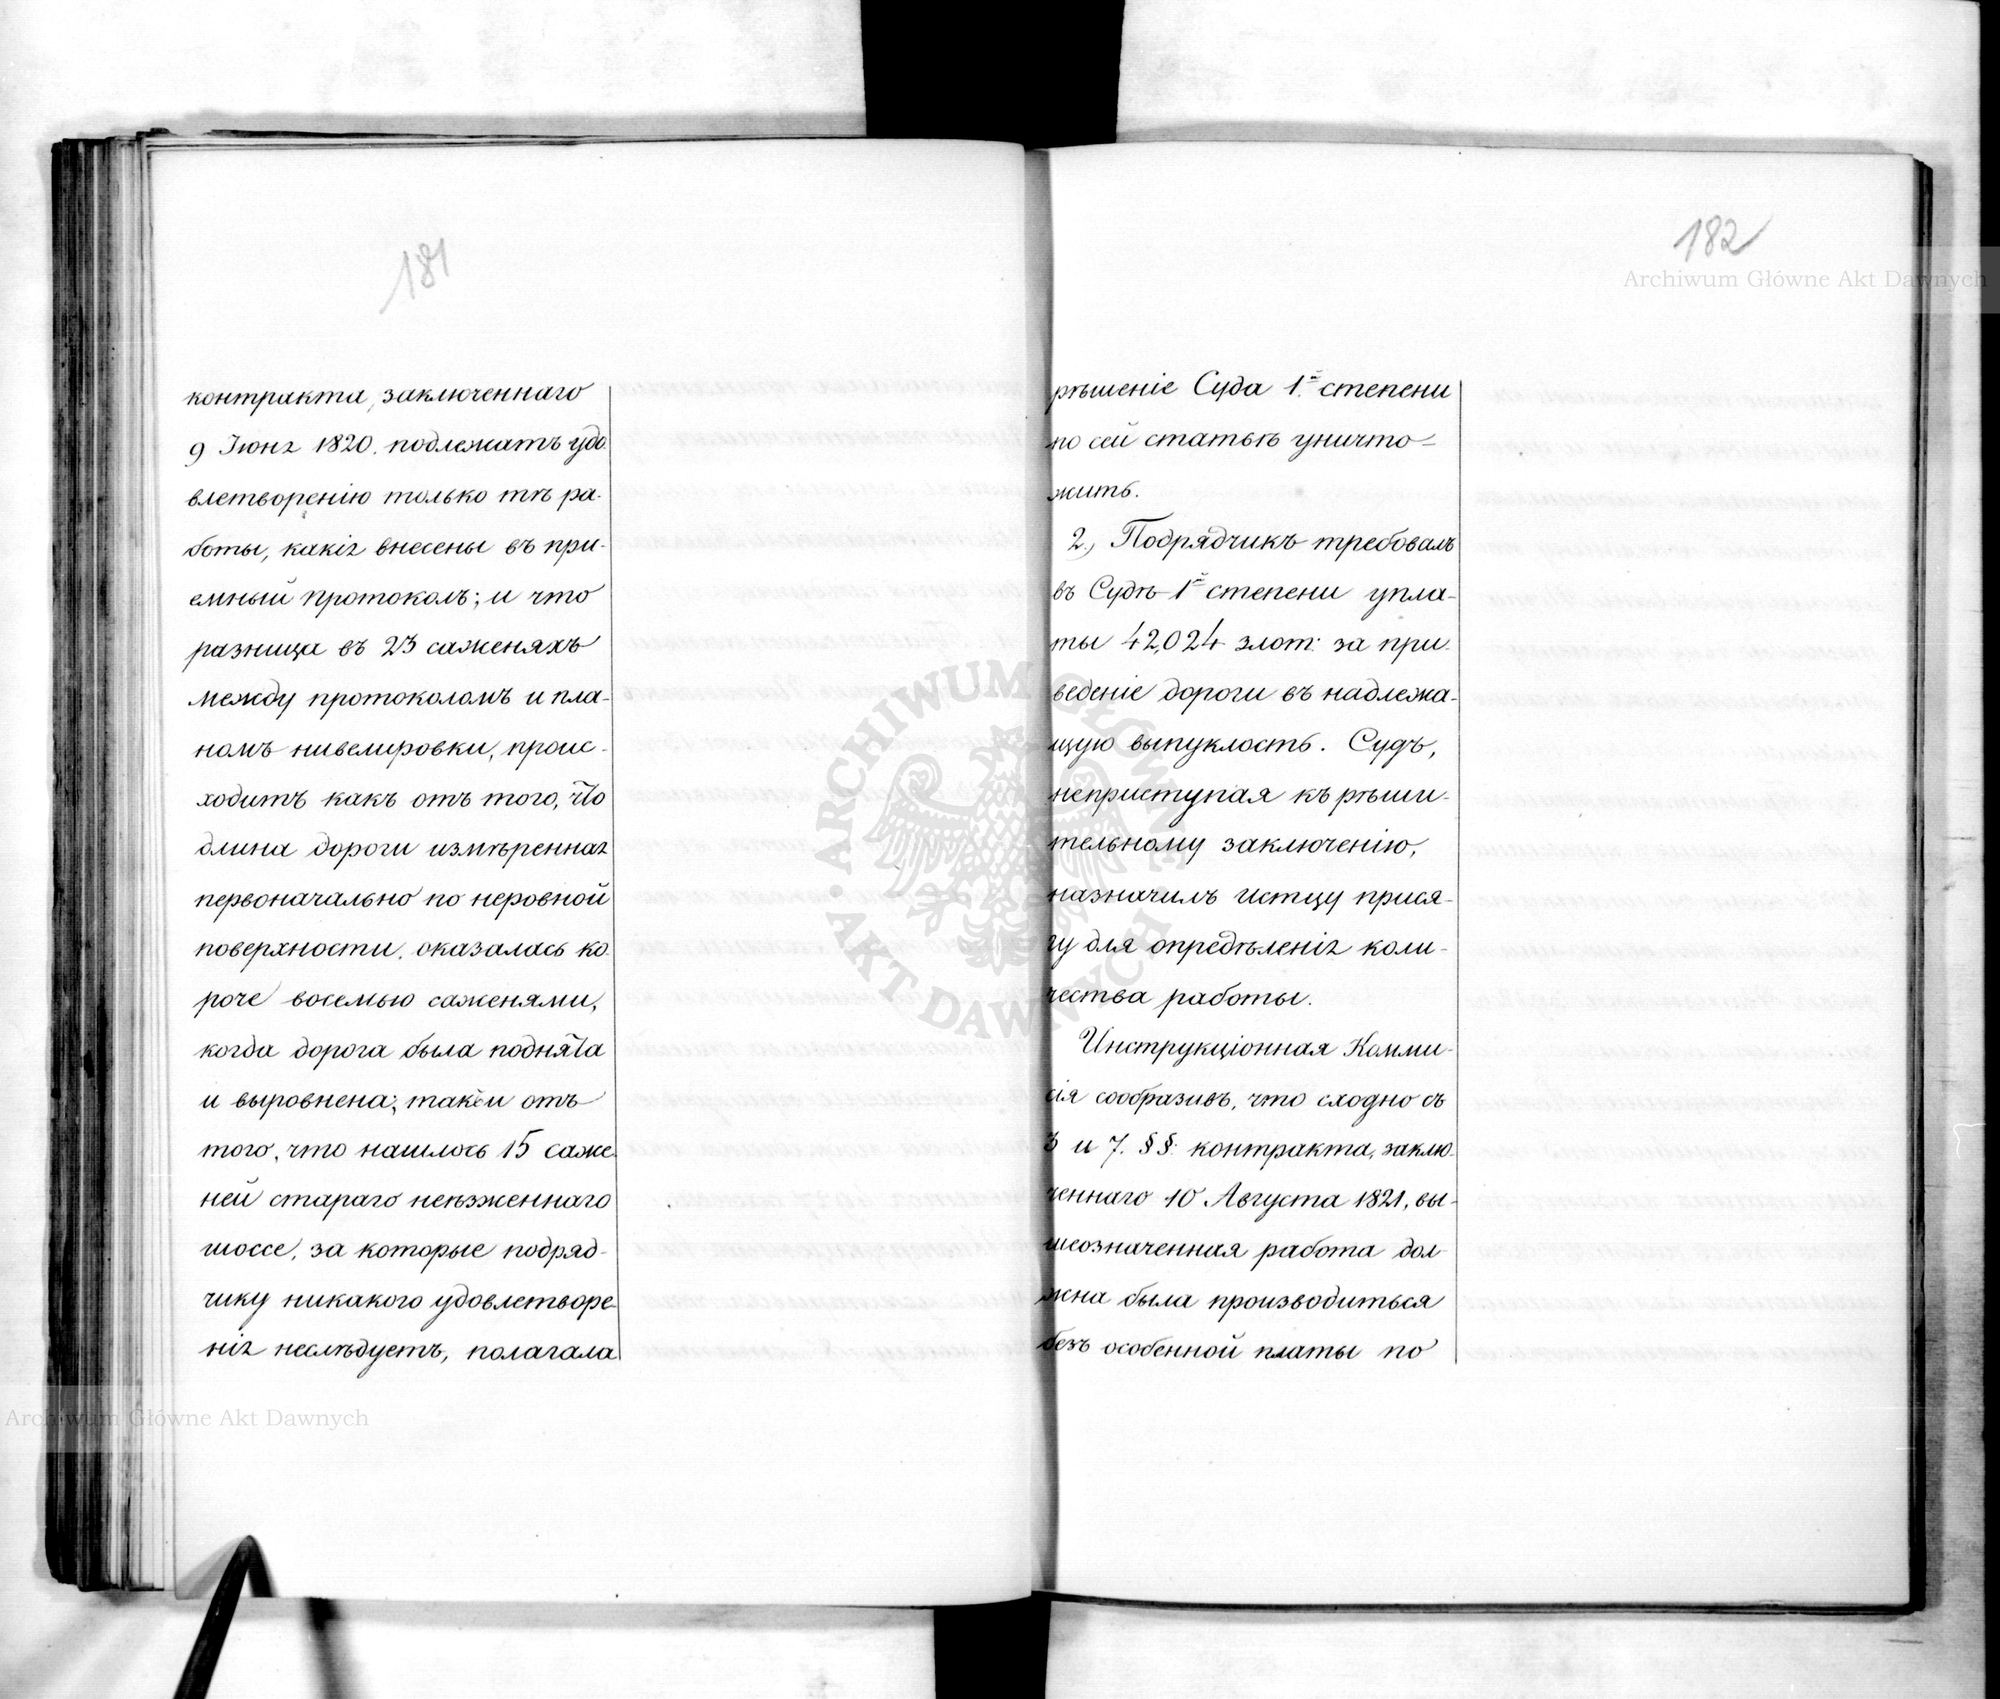 181
контракта, заключеннаго
9 Іюня 1820. подлежатъ удо-
влетворенію только тѣ ра-
боты, какія внесены въ при-
емный протоколъ; и что
разница въ 23 саженяхъ
между протоколомъ и пла-
номъ нивелировки, проис-
ходитъ какъ отъ того, что
длина дороги измѣренная
первоначально по неровной
поверхности, оказалась ко-
роче восемью саженями,
когда дорога была поднята
и выровнена; такъ и отъ
того, что нашлось 15 саже-
ней стараго неѣзженнаго
шоссе, за которые подряд-
чику никакого удовлетворе-
нія неслѣдуетъ, полагала
182
рѣшеніе Суда 1й степени
по сей статьѣ уничто-
жить.
2, Подрядчикъ требовалъ
въ Судѣ 1й степени упла-
ты 42,024 злот: за при-
ведение дороги въ надлежа-
щую выпуклость. Судъ,
неприступая къ рѣши-
тельному заключенію,
назначилъ истцу прися-
гу для опредѣленія коли-
чества работы.
Инструкціонная Комми-
сія сообразивъ, что сходно съ
3 и 7. §§: контракта, заклю-
ченнаго 10 Августа 1821, вы-
шеозначенная работа дол-
жна была производиться
безъ особенной платы по
Archiwum Główne Akt Dawnych
Archiwum Główne Akt Dawnych
ARCHIWUM GŁÓWNE AKT DAWNYCH